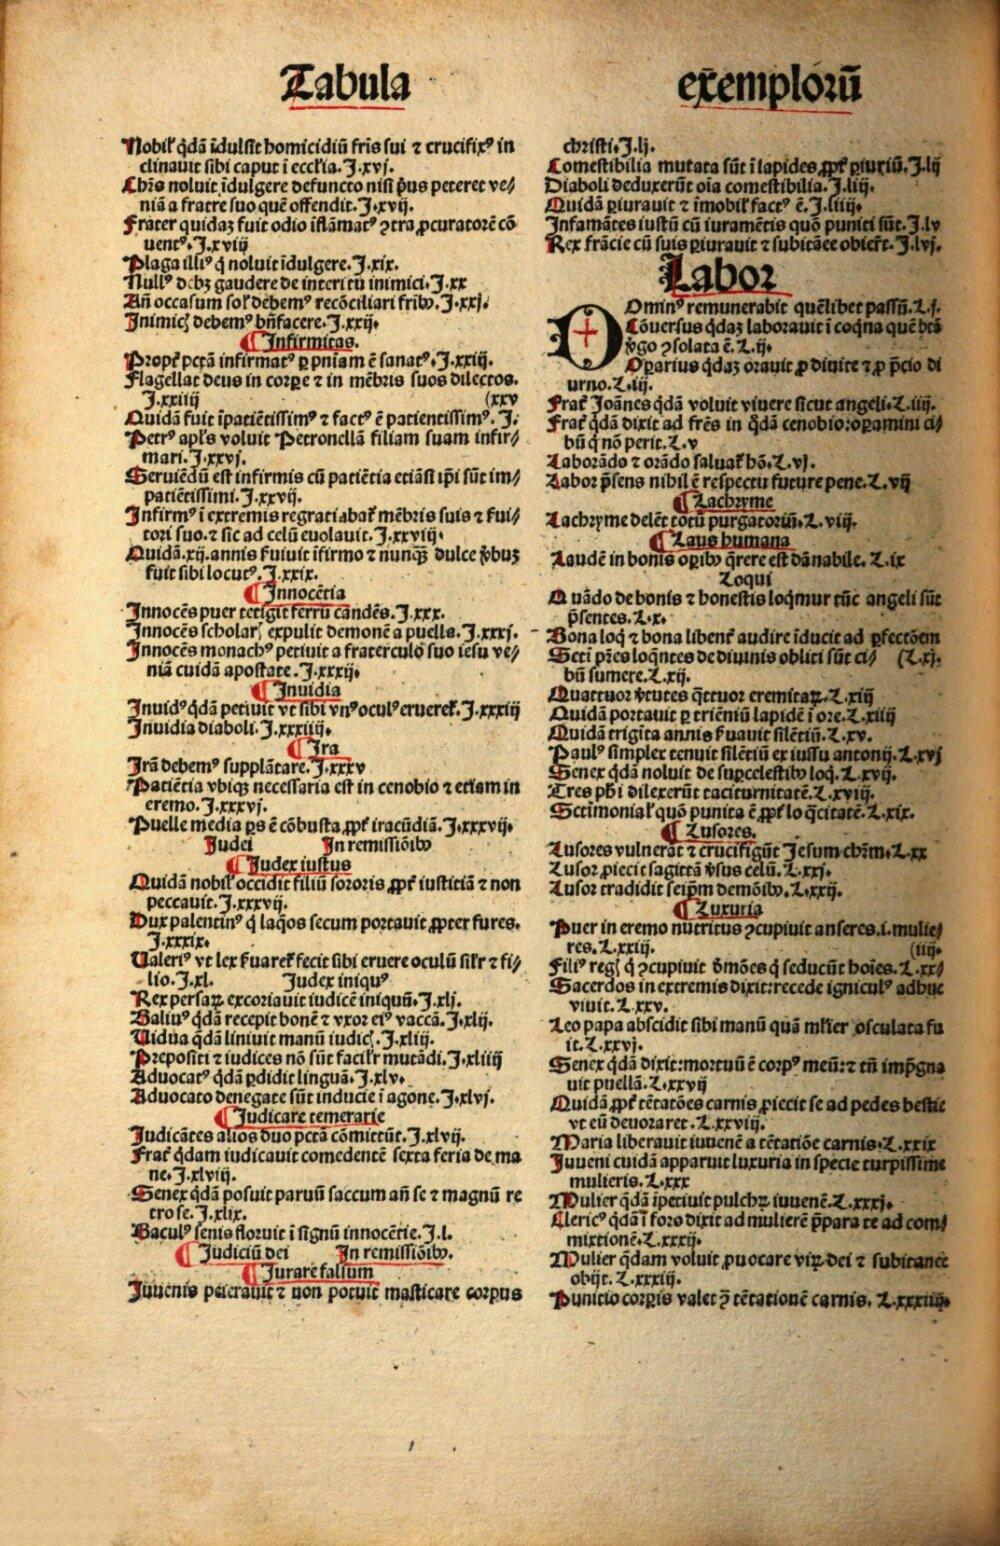 Tabula exēmplorū
Nobil' q̄dā īdulsit homicidiū frīs sui ⁊ crucifixꝰ in
clinauit sibi caput ī eccl'ia. J.xvj.
Chr̄s noluit īdulgere defuncto nisi p̄us peteret ve⸗/
niā a fratre suo quē offendit. J.xvij.
Frater quidaꝫ fuit odio īflāmatꝰ ꝯtra ꝓcuratorē cō
uentꝰ. J.xviij
Plaga illiꝰ q̄ noluit īdulgere. J.xix.
Nullꝰ debꝫ gaudere de interitu inimici. J.xx
Añ occasum sol' debemꝰ recōciliari frībꝰ. J.xxj.
Inimicꝭ debemꝰ bn̄facere. J.xxij.
¶ Infirmitas.
Propt' pctā infirmatꝰ ꝑ pniam ē sanatꝰ. J.xxiij.
Flagellat deus in corꝑe ⁊ in mēbris suos dilectos.
J.xxiiij (xxv
Quidā fuit īpatiētissimꝰ ⁊ factꝰ ē patientissimꝰ. J.
Petrꝰ apl's voluit Petronellā filiam suam infir⸗/
mari. J.xxvj.
Seruiēdū est infirmis cū patiētia etiāsi ip̄i sūt im⸗/
patiētissimi. J.xxvij.
Infirmꝰ ī extremis regratiabat' mēbris suis ⁊ fui⸗/
tori suo. ⁊ sic ad celū euolauit. J.xxviij.
Quidā.xij. annis fuiuit īfirmo ⁊ nunqꝫ dulce v̄buꝫ
fuit sibi locutꝰ. J.xxix.
¶ Innocētia
Innocēs puer tetigit ferrū candēs. J.xxx.
Innocēs scholarꝭ expulit demonē a puella. J.xxxj.
Innocēs monachꝰ petiuit a fraterculo suo iesu ve⸗/
niā cuidā apostate. J.xxxij.
¶ Inuidia
Inuidꝰ q̄dā petiuit vt sibi vnꝰ oculꝰ erueret'. J.xxxiij
Inuidia diaboli. J.xxxiiij.
¶ Ira
Irā debemꝰ supplātare. J.xxxv
Patiētia vbiqꝫ necessaria est in cenobio ⁊ etiam in
eremo. J.xxxvj.
Puelle media ꝑs ē cōbusta ꝓpt' iracūdiā. J.xxxvij.
Judei In remissiōibꝰ
¶ Judex iustus
Quidā nobil' occidit filiū sororis ꝓpt' iusticiā ⁊ non
peccauit. J.xxxvij.
Dux palentinꝰ q̄ laq̄os secum portauit ꝓpter fures.
J.xxxix.
Valeriꝰ vt lex f̄uaret' fecit sibi eruere oculū sil'r ⁊ fi⸗/
lio. J.xl. Judex iniquꝰ
Rex persaꝝ excoriauit iudicē iniquū. J.xlj.
Baliuꝰ q̄dā recepit bonē ⁊ vxor eiꝰ vaccā. J.xlij.
Vidua q̄dā liniuit manū iudicꝭ. J.xliij.
Prepositi ⁊ iudices nō sūt facil'r mutādi. J.xliiij
Aduocatꝰ q̄dā ꝑdidit linguā. J.xlv.
Aduocato denegate sūt inducie ī agone. J.xlvj.
¶ Judicare temerarie
Judicātes alios duo pctā cōmittūt. J.xlvij.
Frat' q̄dam iudicauit comedentē sexta feria de ma
ne. J.xlviij.
Senex q̄dā posuit paruū saccum añ se ⁊ magnū re
tro se. J.xlix.
Baculꝰ senis floruit ī signū innocētie. J.l.
¶ Judiciū dei In remissiōibꝰ.
¶ Jurare falsum
Juuenis peierauit ⁊ non potuit masticare corpus
christi. J.lj.
Comestibilia mutata sūt ī lapides ꝓpt' ꝑiuriū. J.lij
Diaboli deduxerūt oīa comestibilia. J.liij.
Quidā ꝑiurauit ⁊ īmobil' factꝰ ē. J.liiij.
Infamātes iustū cū iuramētis quō puniti sūt. J.lv
Rex frācie cū suis ꝑiurauit ⁊ subitāee obier̄t. J.lvj.
Labor
Ominꝰ remunerabit quēlibet passū. L.j.
Cōuersus q̄daꝫ laborauit ī coq̄na quē btā
v̄go ꝯsolata ē. L.ij.
Oꝑarius q̄daꝫ orauit ꝓ diuite ⁊ ꝓ p̄cio di
urno. L.iij.
Frat' Joānes q̄dā voluit viuere sicut angeli. L.iiij.
Frat' q̄dā dixit ad frēs in q̄dā cenobio: oꝑamini ci⸗/
bū q̄ nō perit. L.v
Laborādo ⁊ orādo saluat' hō. L.vj.
Labor p̄sens nihil ē respectu future pene. L.vij
¶ Lachryme
Lachryme delēt totū purgatoriū. L.viij.
¶ Laus humana
Laudē in bonis oꝑibꝰ q̄rere est dānabile. L.ix
Loqui
Quādo de bonis ⁊ honestis loq̄mur tūc angeli sūt
p̄sentes. L.x.
Bona loq̄ ⁊ bona libent' audire īducit ad ꝑfectōem
Scti pr̄es loq̄ntes de diuinis obliti sūt ci⸗/ (L.xj.
bū sumere. L.xij.
Quattuor v̄tutes q̄ttuor eremitaꝝ. L.xiij
Quidā portauit ꝑ triēniū lapidē ī ore. L.xiiij
Quidā trigīta annis f̄uauit silētiū. L.xv.
Paulꝰ simplex tenuit silētiū ex iussu antonij. L.xvj
Senex q̄dā noluit de suꝑcelestibꝰ loq̄. L.xvij.
Tres ph̄i dilexerūt taciturnitatē. L.xviij.
Sctimonial' quō punita ē ꝓpt' loq̄citatē. L.xix.
¶ Lusores.
Lusores vulnerāt ⁊ crucifigūt Jesum chr̄m. L.xx
Lusor ꝓiecit sagittā v̄sus celū. L.xxj.
Lusor tradidit seip̄m demōibꝰ. L.xxij.
¶ Luxuria
Puer in eremo nutritus ꝯcupiuit anseres. i. mulie⸗/
res. L.xxiij. (iiij.
Filiꝰ regꝭ q̄ ꝯcupiuit d̄mōes q̄ seducūt hoīes. L.xx⸗/
Sacerdos in extremis dixit: recede igniculꝰ adhuc
viuit. L.xxv.
Leo papa abscidit sibi manū quā ml'ier osculata fu
it. L.xxvj.
Senex q̄dā dixit: mortuū ē corpꝰ meū: ⁊ tn̄ imp̄gna
uit puellā. L.xxvij
Quidā ꝓpt' tētatōes carnis ꝓiecit se ad pedes bestie
vt eū deuoraret. L.xxviij.
Maria liberauit iuuenē a tētatiōe carnis. L.xxix
Juueni cuidā apparuit luxuria in specie turpissime
mulieris. L.xxx
Mulier q̄dā īpetiuit pulchꝝ iuuenē. L.xxxj.
Clericꝰ q̄dā ī foro dixit ad mulierē p̄para te ad com⸗/
mixtionē. L.xxxij.
Mulier q̄dam voluit ꝓuocare viꝝ dei ⁊ subitanee
obijt. L.xxxiij.
Punitio corꝑis valet ꝯ̄ tētationē carnis. L.xxxiiij.